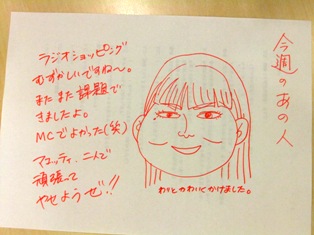 今週のあの人
ラジオショッピング
むずかしいですね〜。
またまた課題で
きましたよ。
MCでよかった(笑)
マユッティ、二人で
頑張って
やせようぜ!!
わりとかわいくかけました。